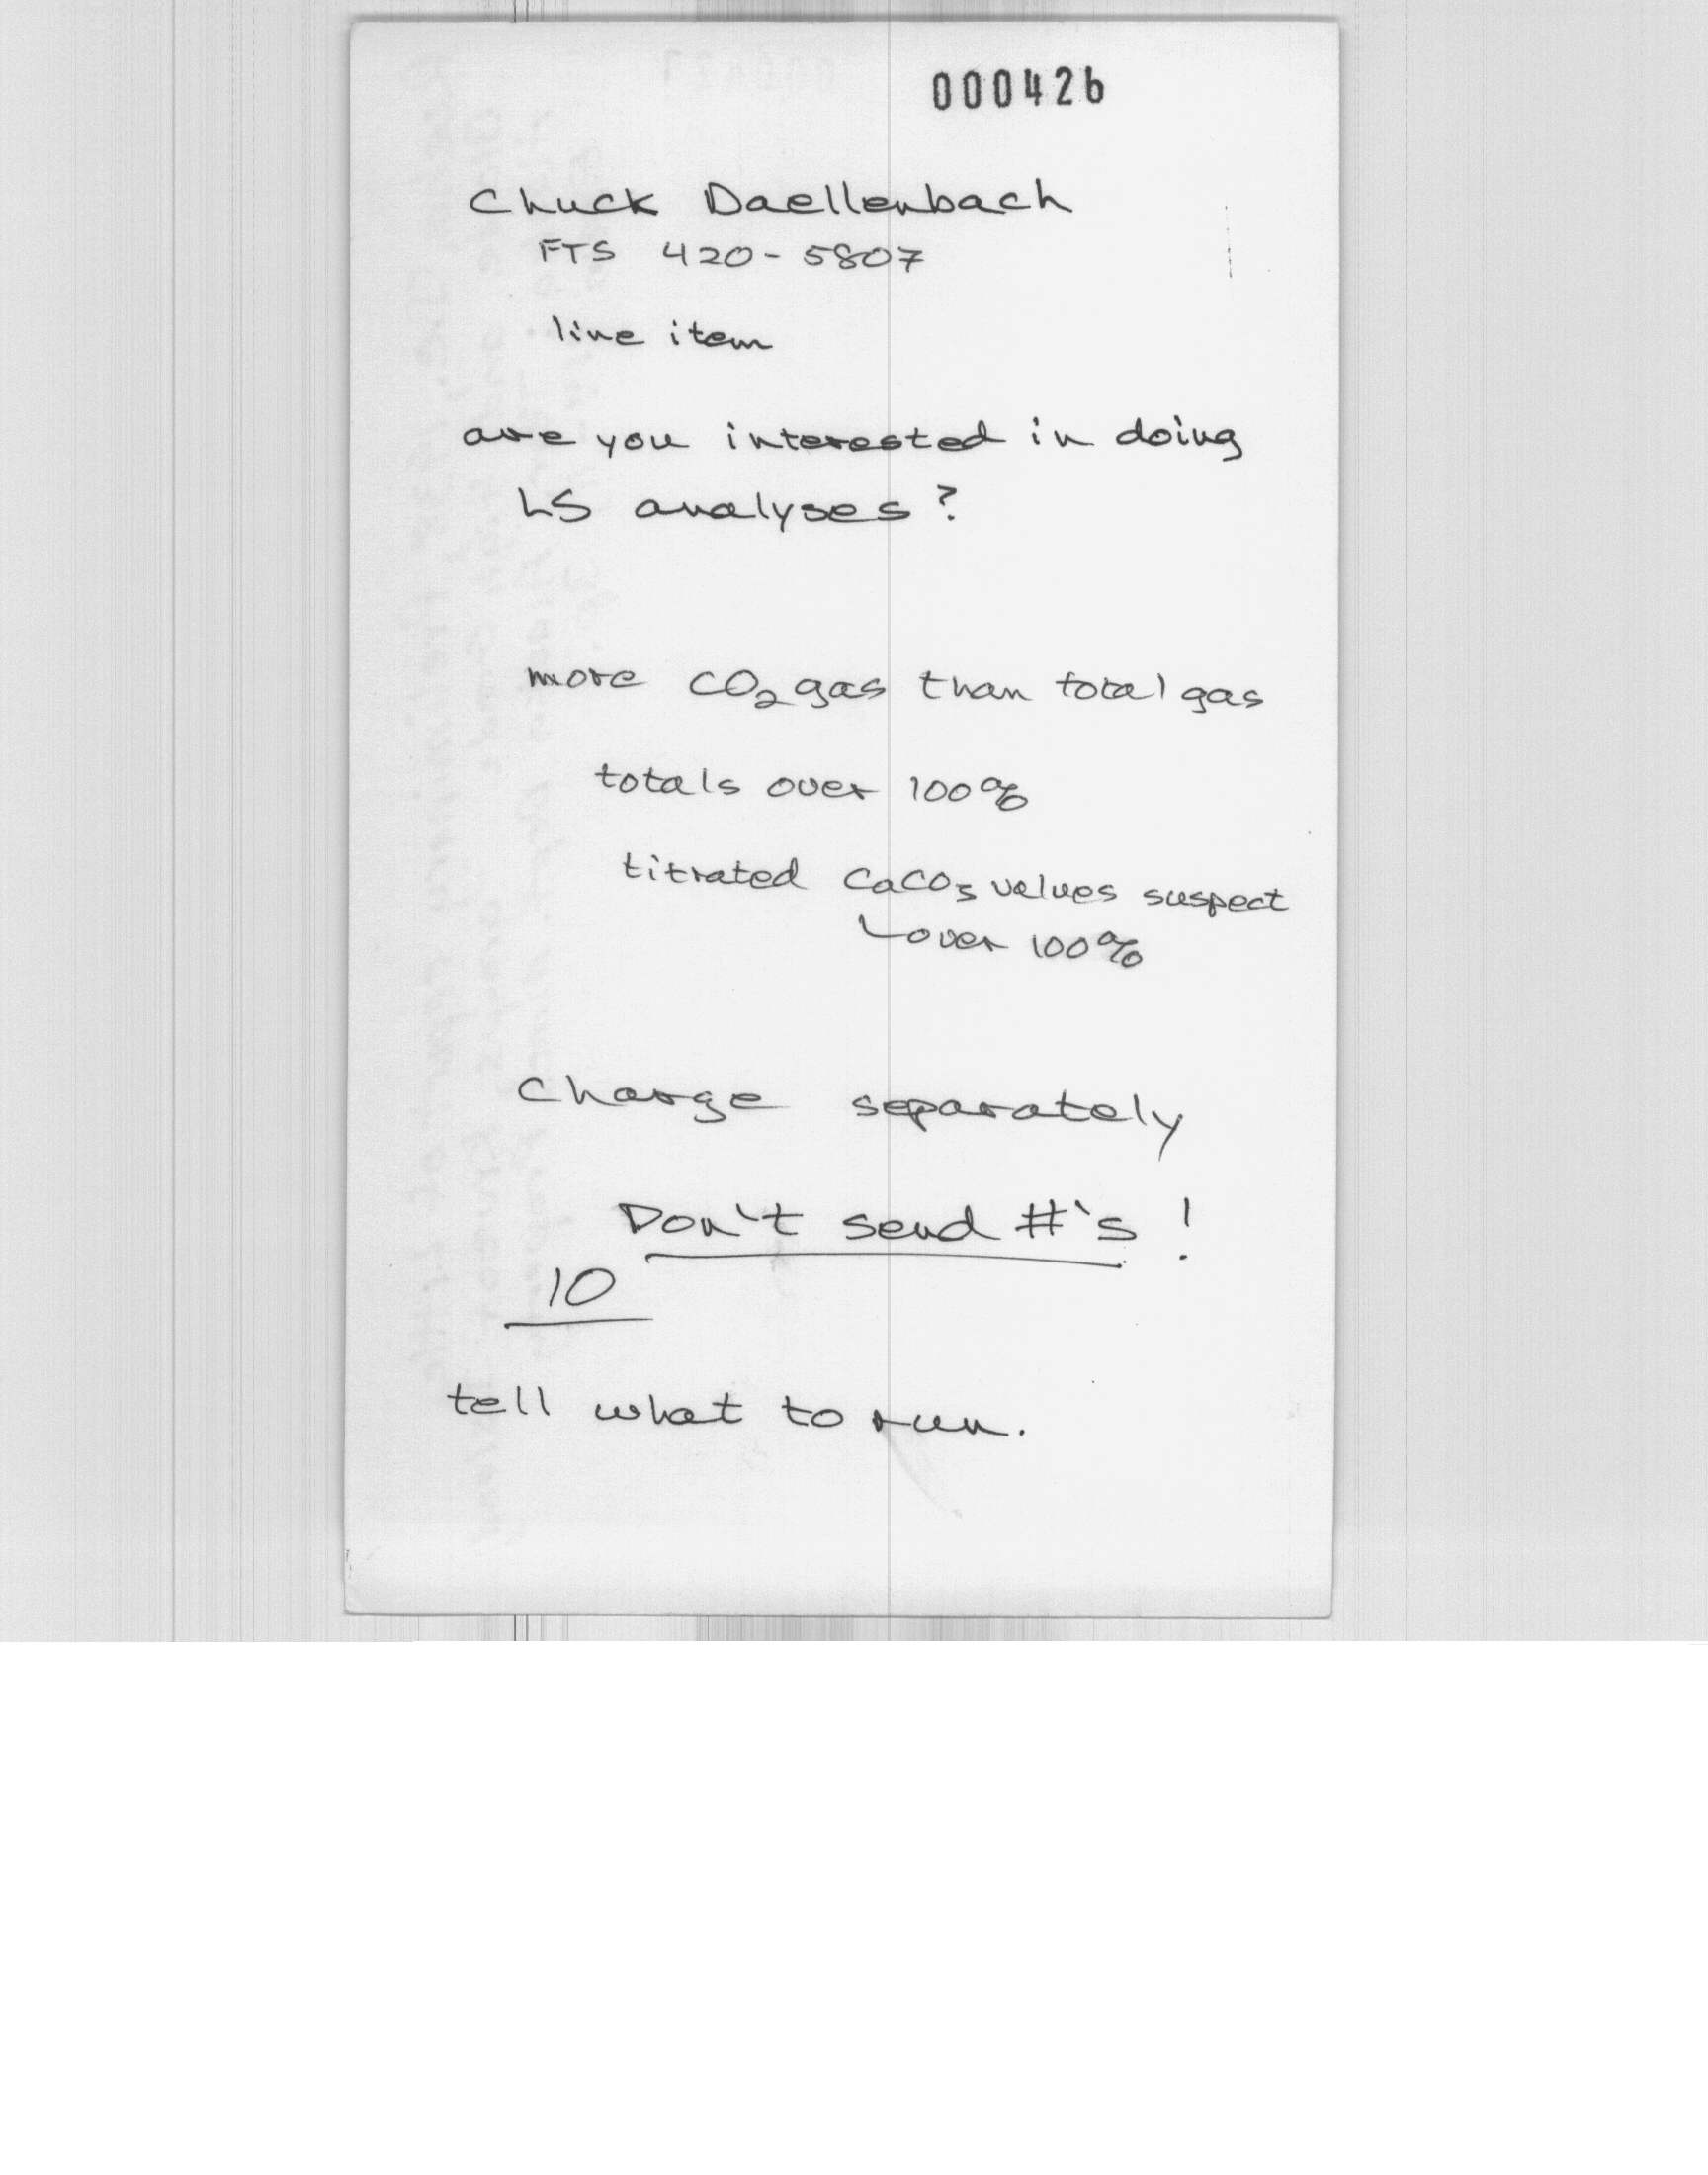 000426
Chuck Daellenbach
FTS 420-5807
line item
are you interested in doing
LS analyses?
more CO2 gas than total gas
totals over 100%
titrated CaCO3 values suspect
over 100%
Charge separately
Don't send #'s !
10
tell what to run.